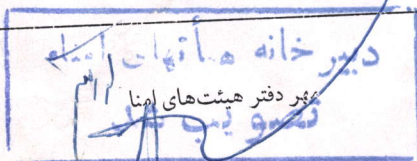 دبیرخانه هیأتهای امناء
مهر دفتر هیئت‌های امنا
تصویب شد